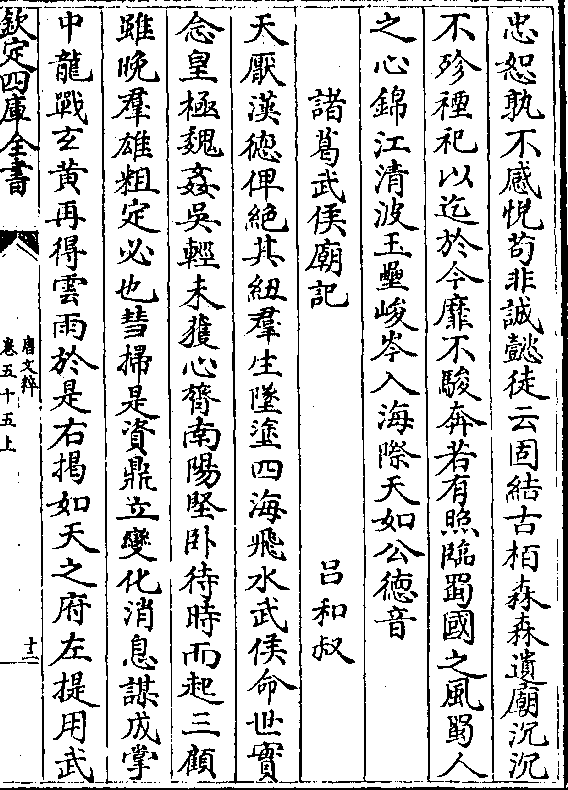 忠恕孰不感悅苟非誠懿徒云固結古栢森森遺廟沉沉
不殄禋祀以迄於今靡不駿奔若有照臨蜀國之風蜀人
之心錦江清波玉壘峻岑入海際天如公徳音
諸葛武侯廟記 吕和叔
天厭漢徳俾絶其紐羣生墜塗四海飛水武侯命世實
念皇極魏姦吳輕未獲心膂南陽堅卧待時而起三顧
雖晚羣雄粗定必也彗掃是資鼎立變化消息謀成掌
中龍戰玄黄再得雲雨於是右揭如天之府左提用武
欽定四庫全書
唐文粹
卷五十五上
十二